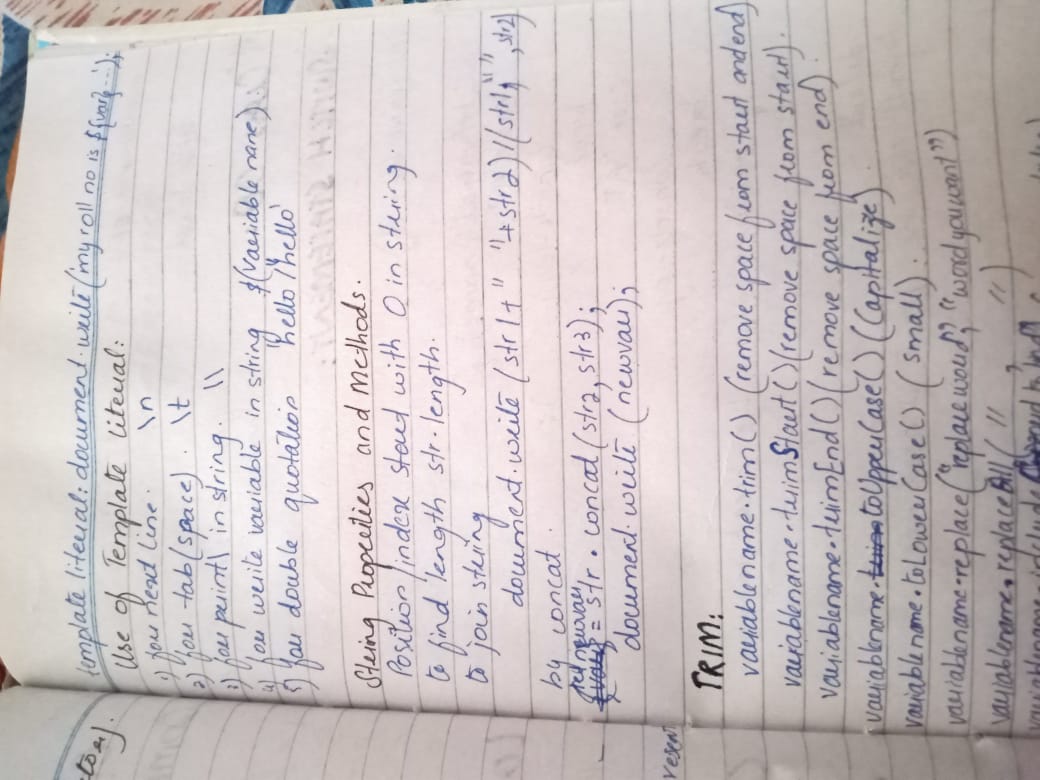 template literal: document.write(my roll no is ${var}...);
Use of Template literal:
1) for next line. \n
2) for tab(space). \t
3) for print \ in string. \\
4) for write variable in string ${variable name}.
5) for double quotation 'hello' 'hello'
String Properties and Methods.
Position/index start with 0 in string.
to find length str.length.
to join string
document.write (str1+" "+str2)/(str1," ",str2)
by concat.
newvar = str.concat(str2,str3);
document.write (newvar);
TRIM:
variablename.trim() (remove space from start and end)
variablename.trimStart() (remove space from start).
variablename.trimEnd() (remove space from end).
variablename.toUpperCase() (Capitalize)
variablename.toLowerCase() (small).
variablename.replace("replaceword","wordyouwant")
variablename.replaceAll( " , " )
variablename.include
tor).